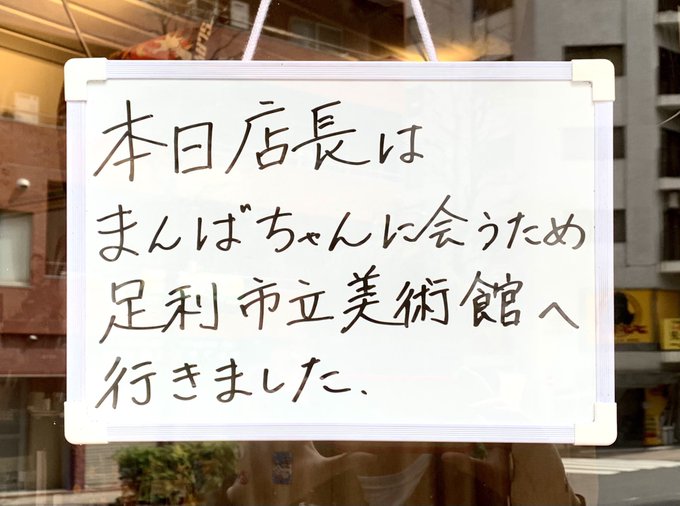 本日店長は
まんばちゃんに会うため
足利市立美術館へ
行きました、